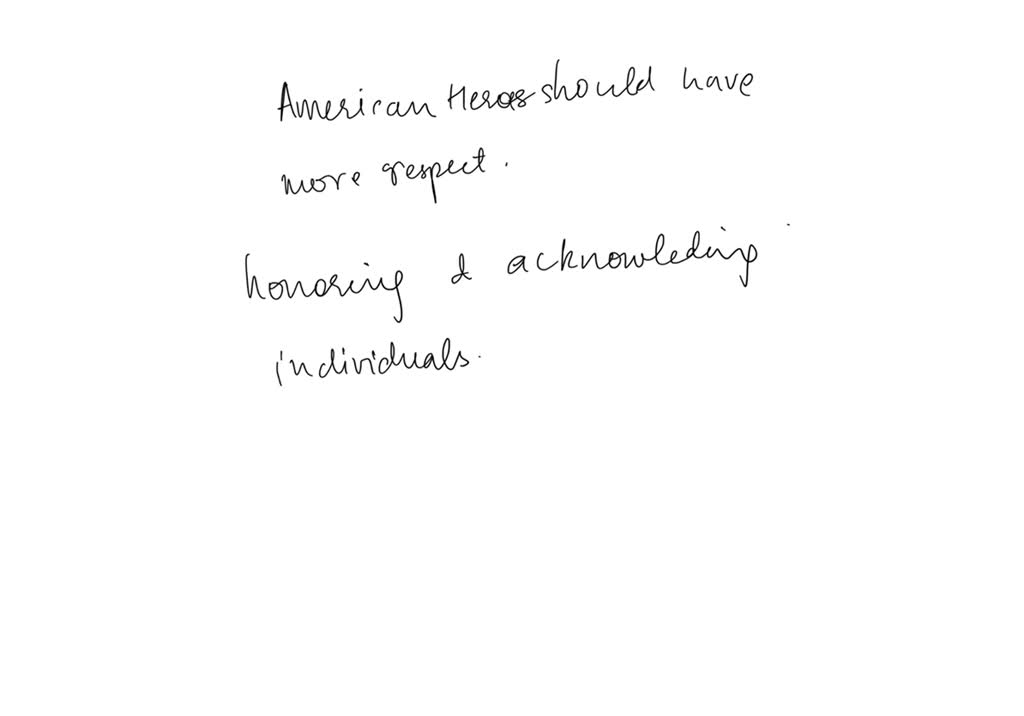 American Heroes should have
more respect.
honoring & acknowleding
individuals.